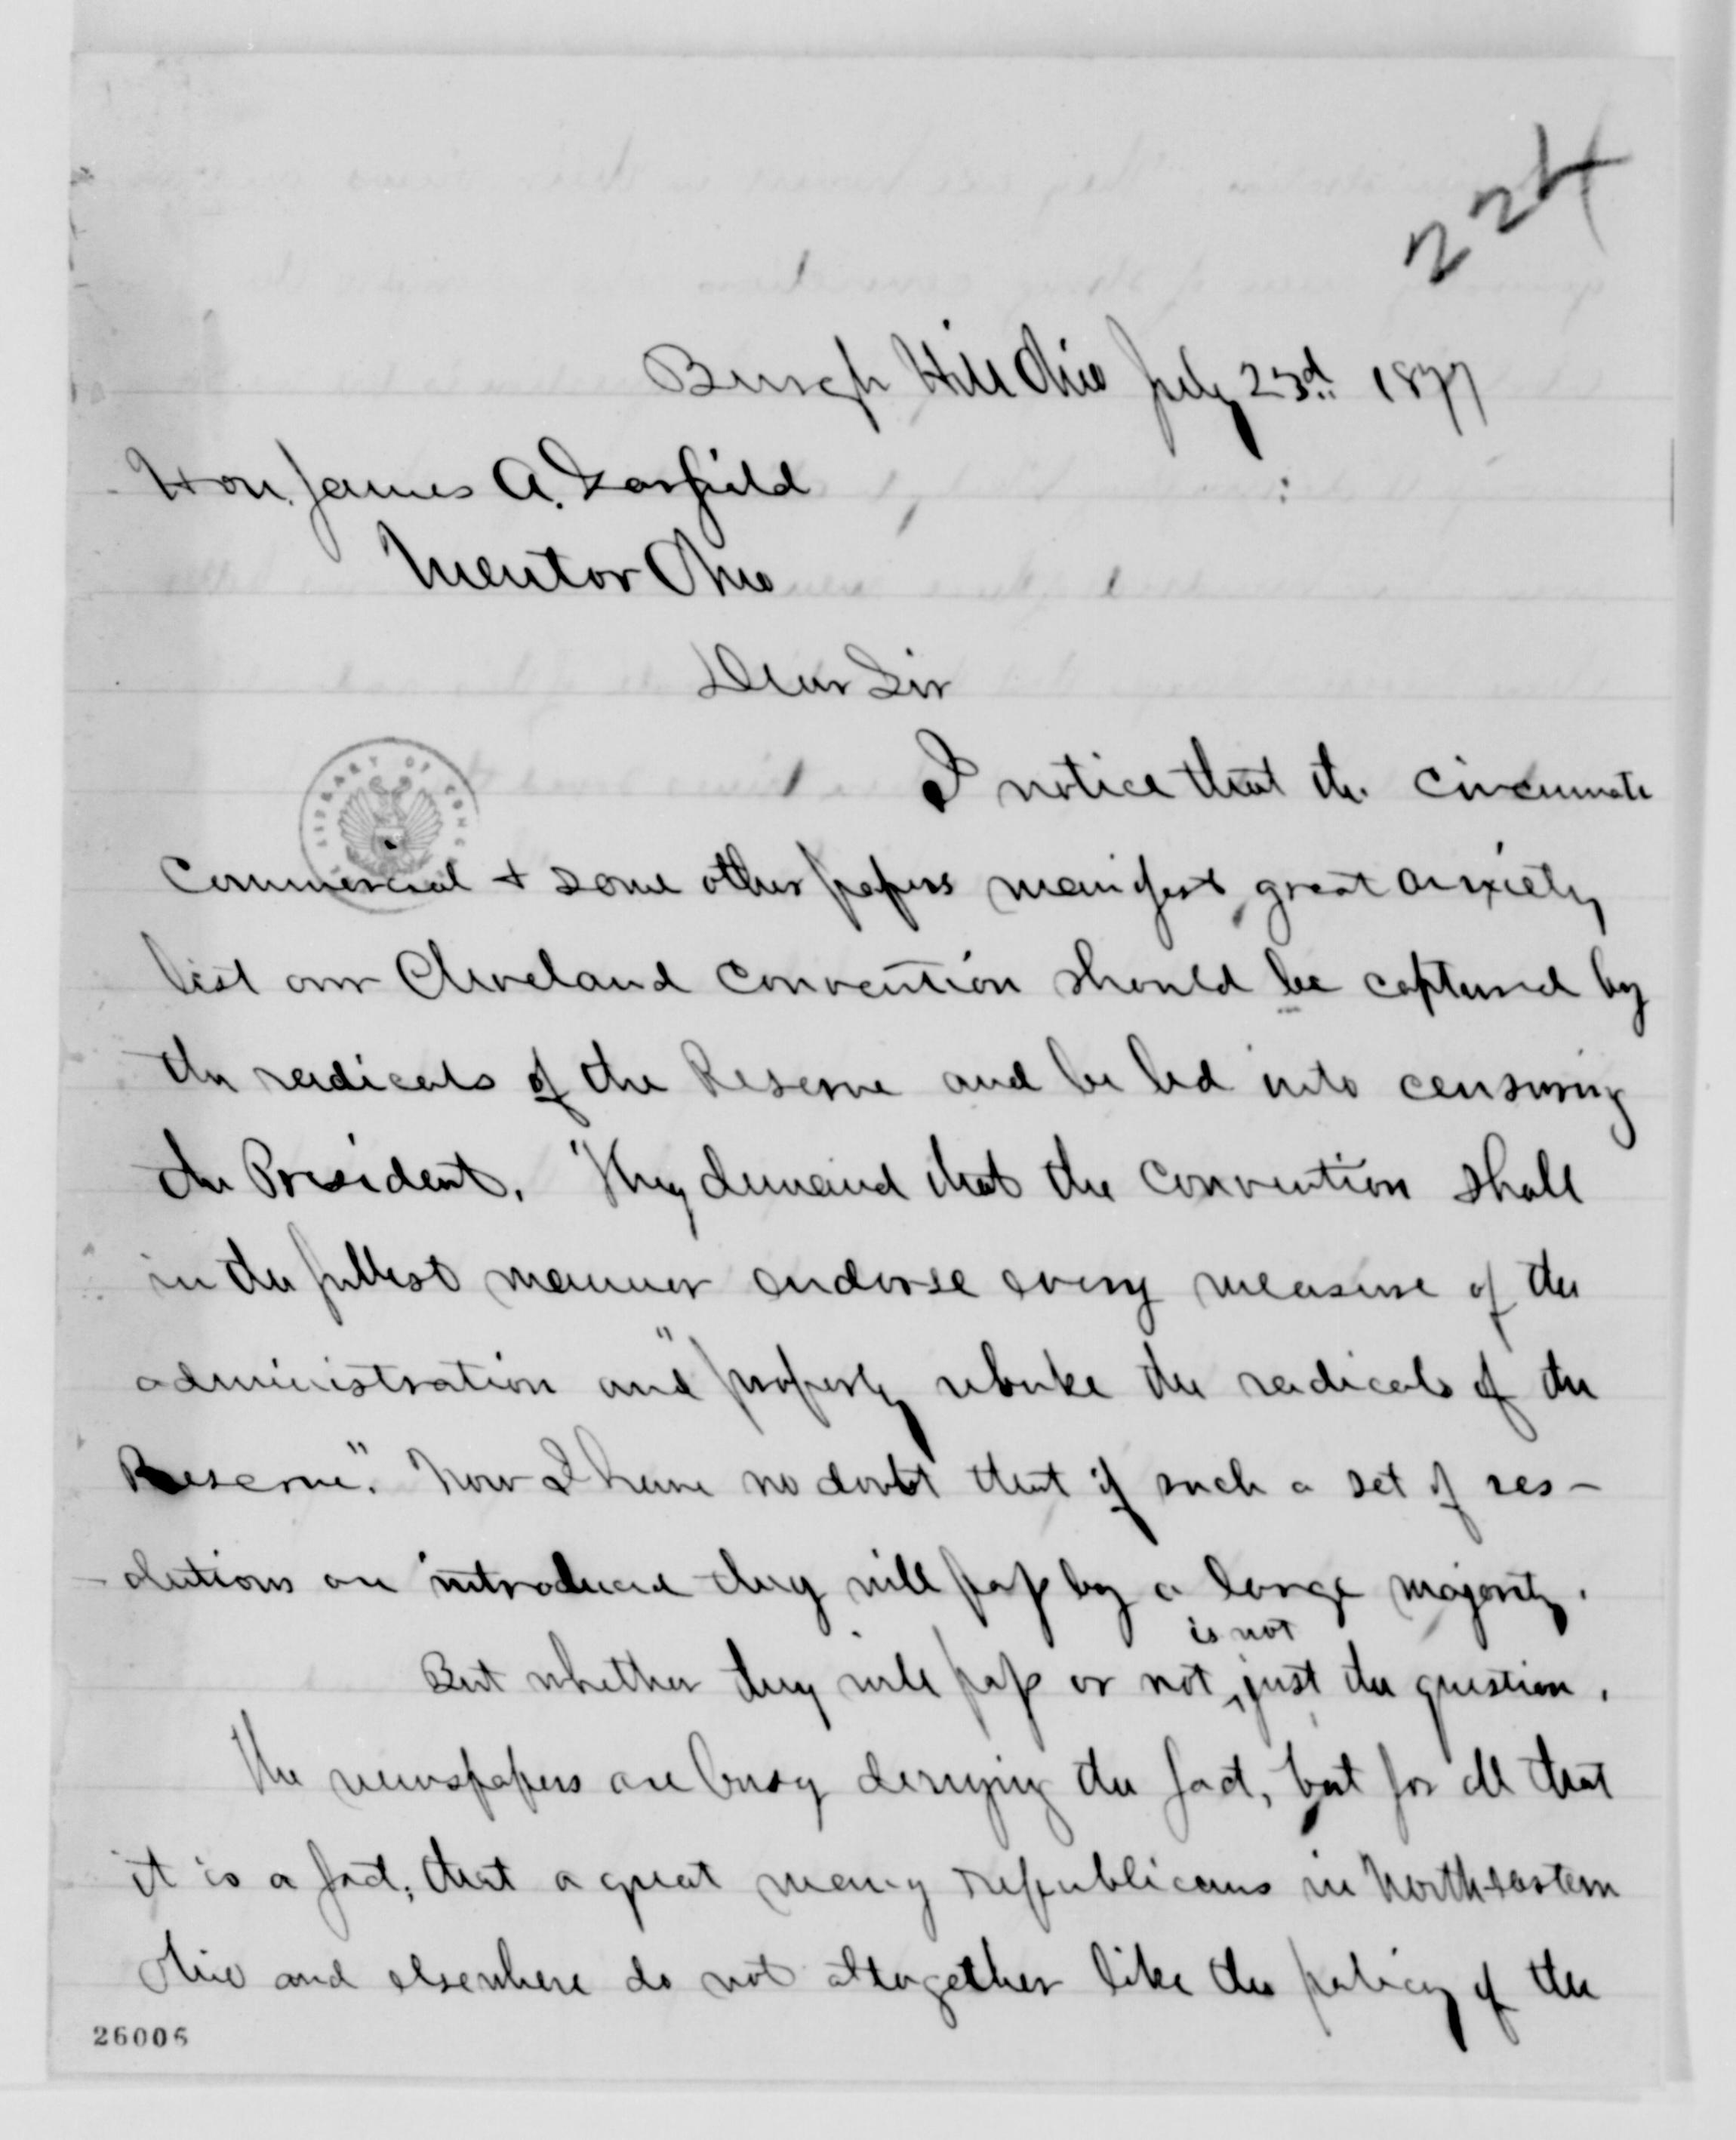 224
Burgh Hill Ohio July 23d. 1877
Hon. James A. Garfield
Mentor Ohio
Dear Sir
I notice that the Cincinnati
LIBRARY OF CONG
Commercial & some other papers manifest great anxiety
lest our Cleveland convention should be captured by
the radicals of the Reserve and be led into censuring
the President. "They demand that the convention shall
in the fullest manner endorse every measure of the
administration and "properly rebuke the radicals of the
Reserve". Now I have no doubt that if such a set of res-
-olutions are introduced they will pass by a large majority.
is not
But whether they will pass or not ^ just the question.
The newspapers are busy denying the fact, but for all that
it is a fact; that a great many republicans in North-eastern
Ohio and elsewhere do not altogether like the policy of the
26006